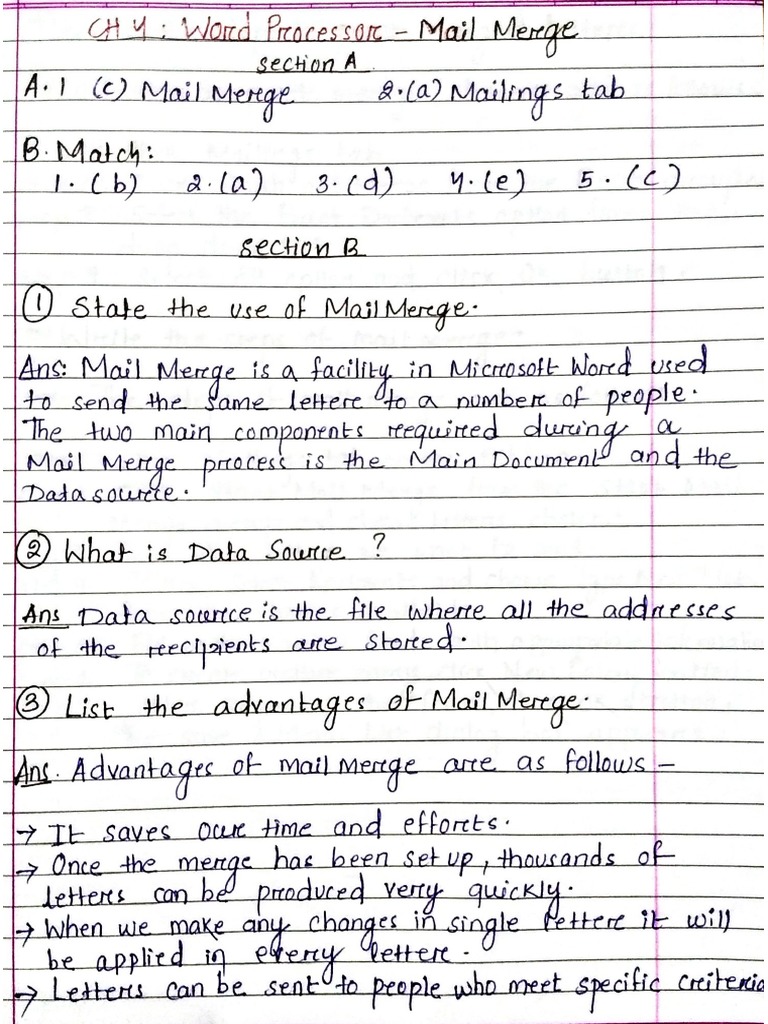 CH 4 : Word Processor - Mail Merge
Section A
A. 1 (c) Mail Merge 2. (a) Mailings tab
B. Match :
1. (b) 2. (a) 3. (d) 4. (e) 5. (c)
Section B
① State the use of Mail Merge.
Ans: Mail Merge is a facility in Microsoft Word used
to send the same letter to a number of people.
The two main components required during a
Mail Merge process is the Main Document and the
Data source.
② What is Data Source ?
Ans Data source is the file where all the addresses
of the recipients are stored.
③ List the advantages of Mail Merge.
Ans. Advantages of mail Merge are as follows -
→ It saves our time and efforts.
→ Once the merge has been set up, thousands of
letters can be produced very quickly.
→ When we make any changes in single letter it will
be applied in every letter.
→ Letters can be sent to people who meet specific criteria